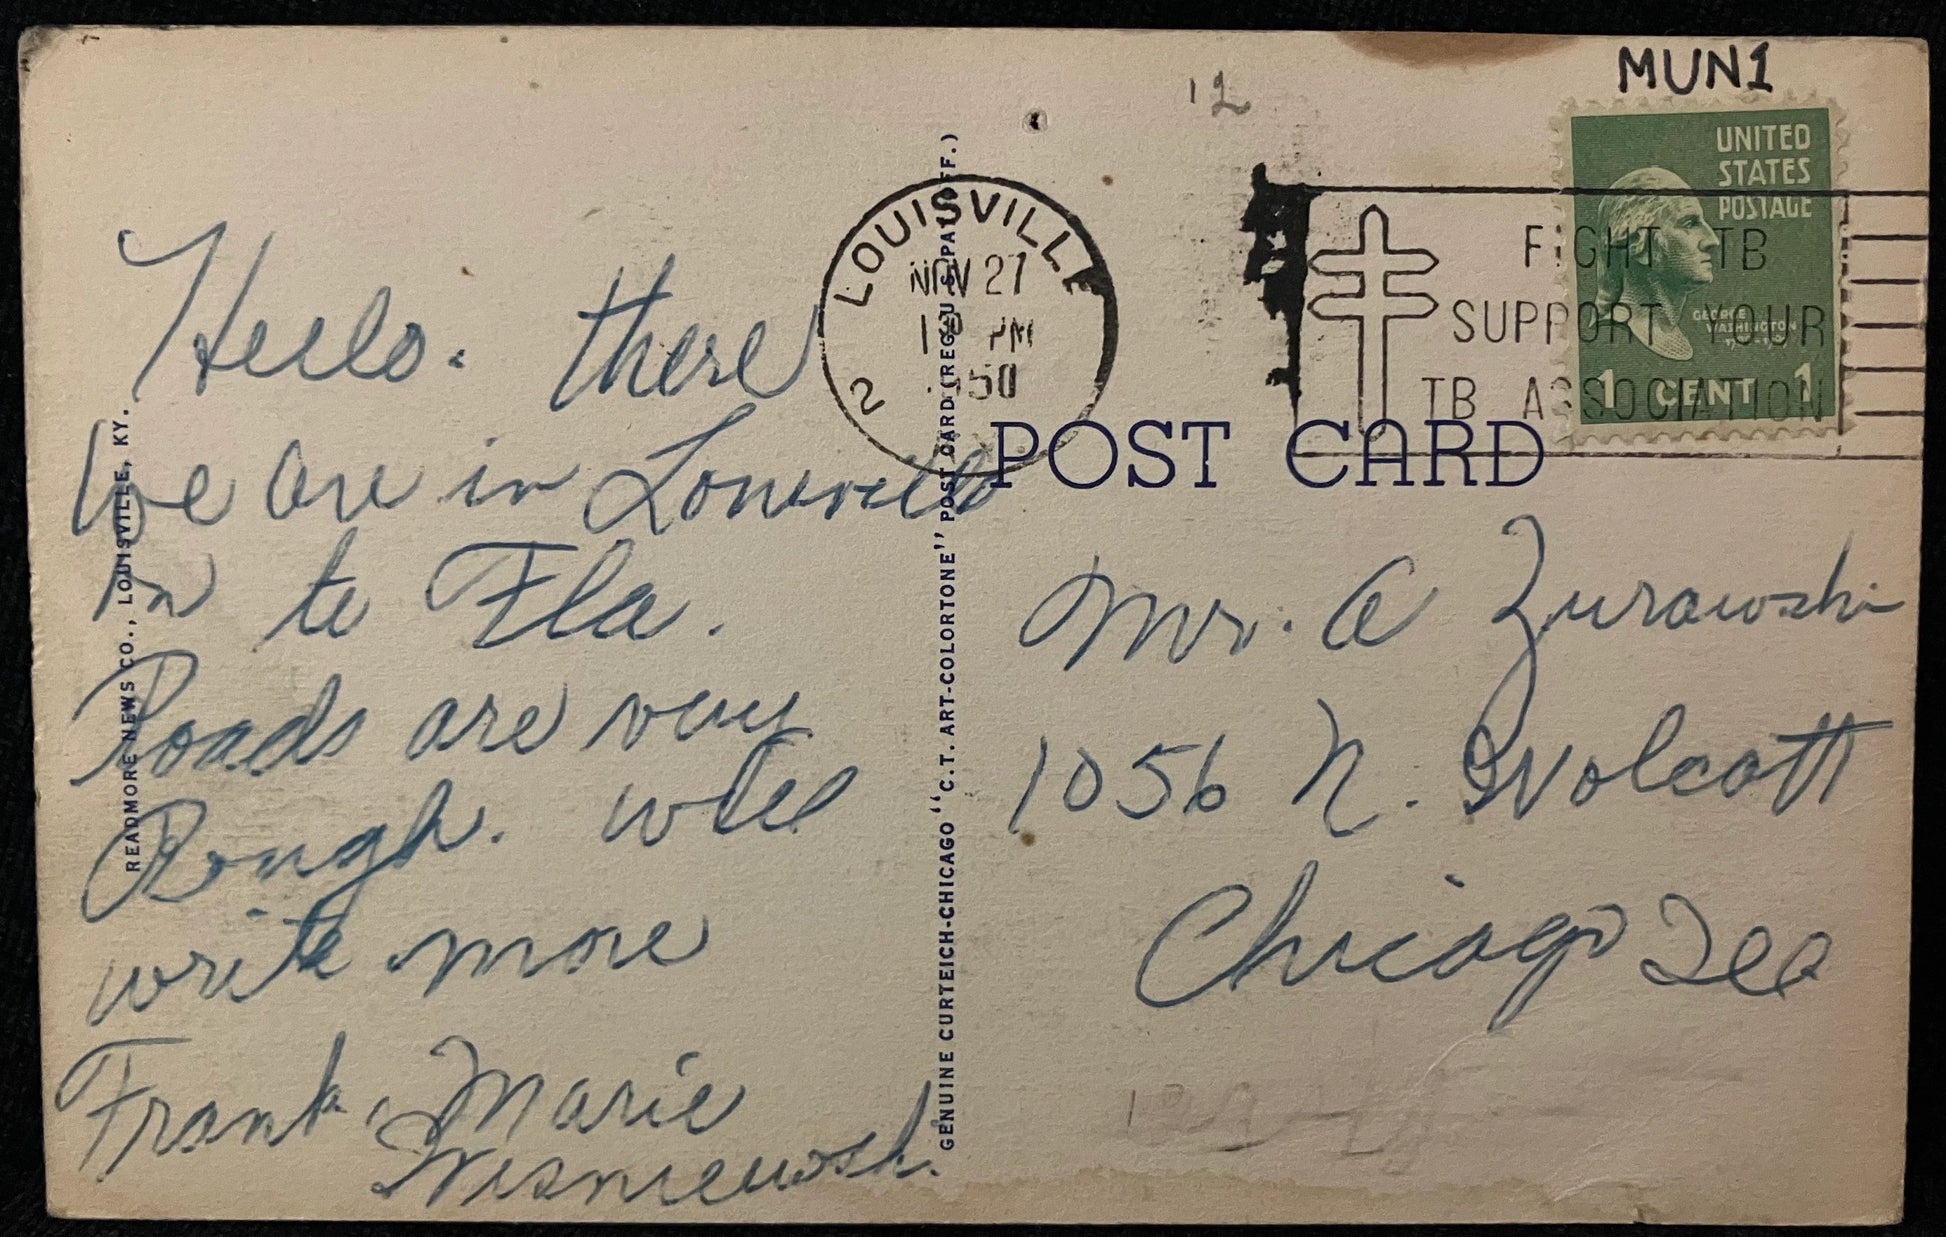 MUN1
12
UNITED
STATES
POSTAGE
GEORGE
WASHINGTON
1 CENT 1
LOUISVILLE
NOV 27
PM
1950
2
FIGHT TB
SUPPORT YOUR
TB ASSOCIATION
POST CARD
READMORE NEWS CO., LOUISVILLE, KY.
GENUINE CURTEICH-CHICAGO "C.T. ART-COLORTONE" POST CARD (REG. U.S. PAT. OFF.)
Hello. there
We are in Louisville
on to Fla.
Roads are very
Rough. will
write more
Frank, Marie
Wisniewski.
Mr. A Zurawski
1056 N. Wolcott
Chicago Ill